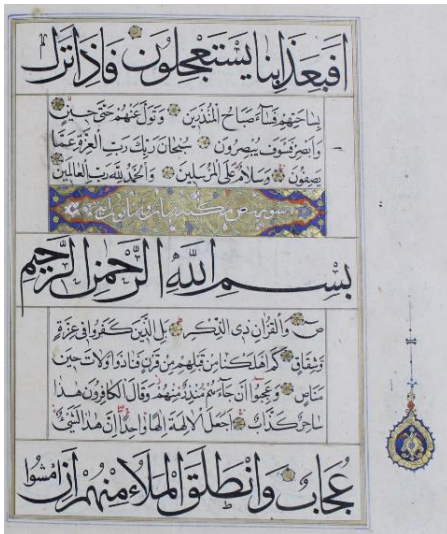 افبعذابنا يستعجلون فاذا نزل
بساحتهم فساء صباح المنذرين وتول عنهم حتى حين
وابصر فسوف يبصرون سبحان ربك رب العزة عما
يصفون وسلام على المرسلين والحمد لله رب العالمين
سورة ص
بِسْمِ اللَّهِ الرَّحْمٰنِ الرَّحِيمِ
ص والقرآن ذي الذكر بل الذين كفروا في عزة
وشقاق كم اهلكنا من قبلهم من قرن فنادوا ولات حين
مناص وعجبوا ان جاءهم منذر منهم وقال الكافرون هذا
ساحر كذاب اجعل الآلهة الها واحدا ان هذا لشيء
عجاب وانطلق الملأ منهم ان امشوا